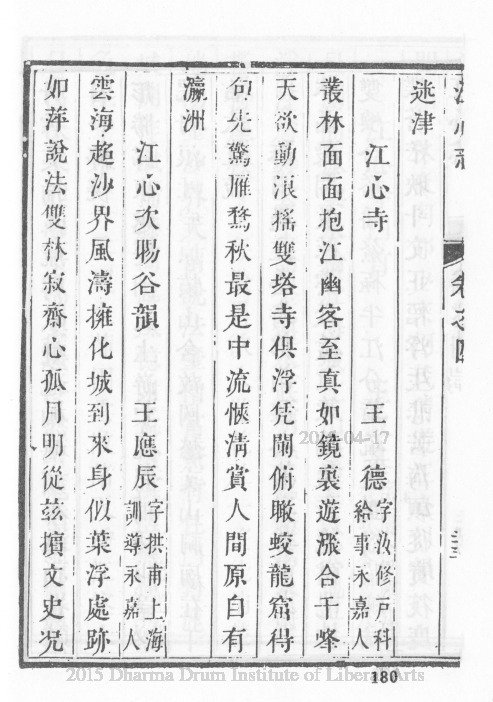 卷之四
迷津
江心寺　王德字汝修戶科給事永嘉人
叢林面面抱江幽客至真如鏡裏遊漲合千峯
天欲動浪搖雙塔寺俱浮凭闌俯瞰蛟龍窟得
句先驚雁鶩秋最是中流愜淸賞人間原自有
瀛洲
江心次暘谷韻　王應辰字拱甫上海訓導永嘉人
雲海趍沙界風濤擁化城到來身似葉浮處跡
如萍說法雙林寂齋心孤月明從茲擯文史况
180
2015 Dharma Drum Institute of Liberal Arts